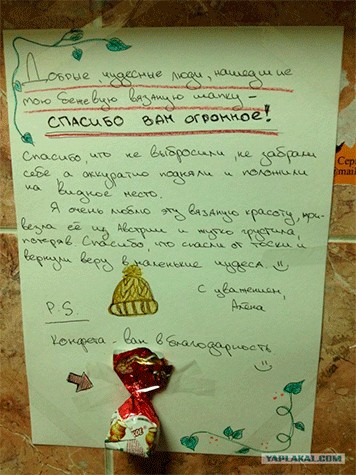 Добрые чудесные люди, нашедшие
мою бежевую вязаную шапку –
СПАСИБО ВАМ ОГРОМНОЕ!
Спасибо, что не выбросили, не забрали
себе, а аккуратно подняли и положили
на видное место.
Я очень люблю эту вязаную красоту, при-
везла её из Австрии и жутко грустила,
потеряв. Спасибо, что спасли от тоски и
вернули веру в маленькие чудеса.
С уважением,
Алёна
P.S.
Конфета – вам в благодарность
Сер
@mail
YAPLAKAL.COM